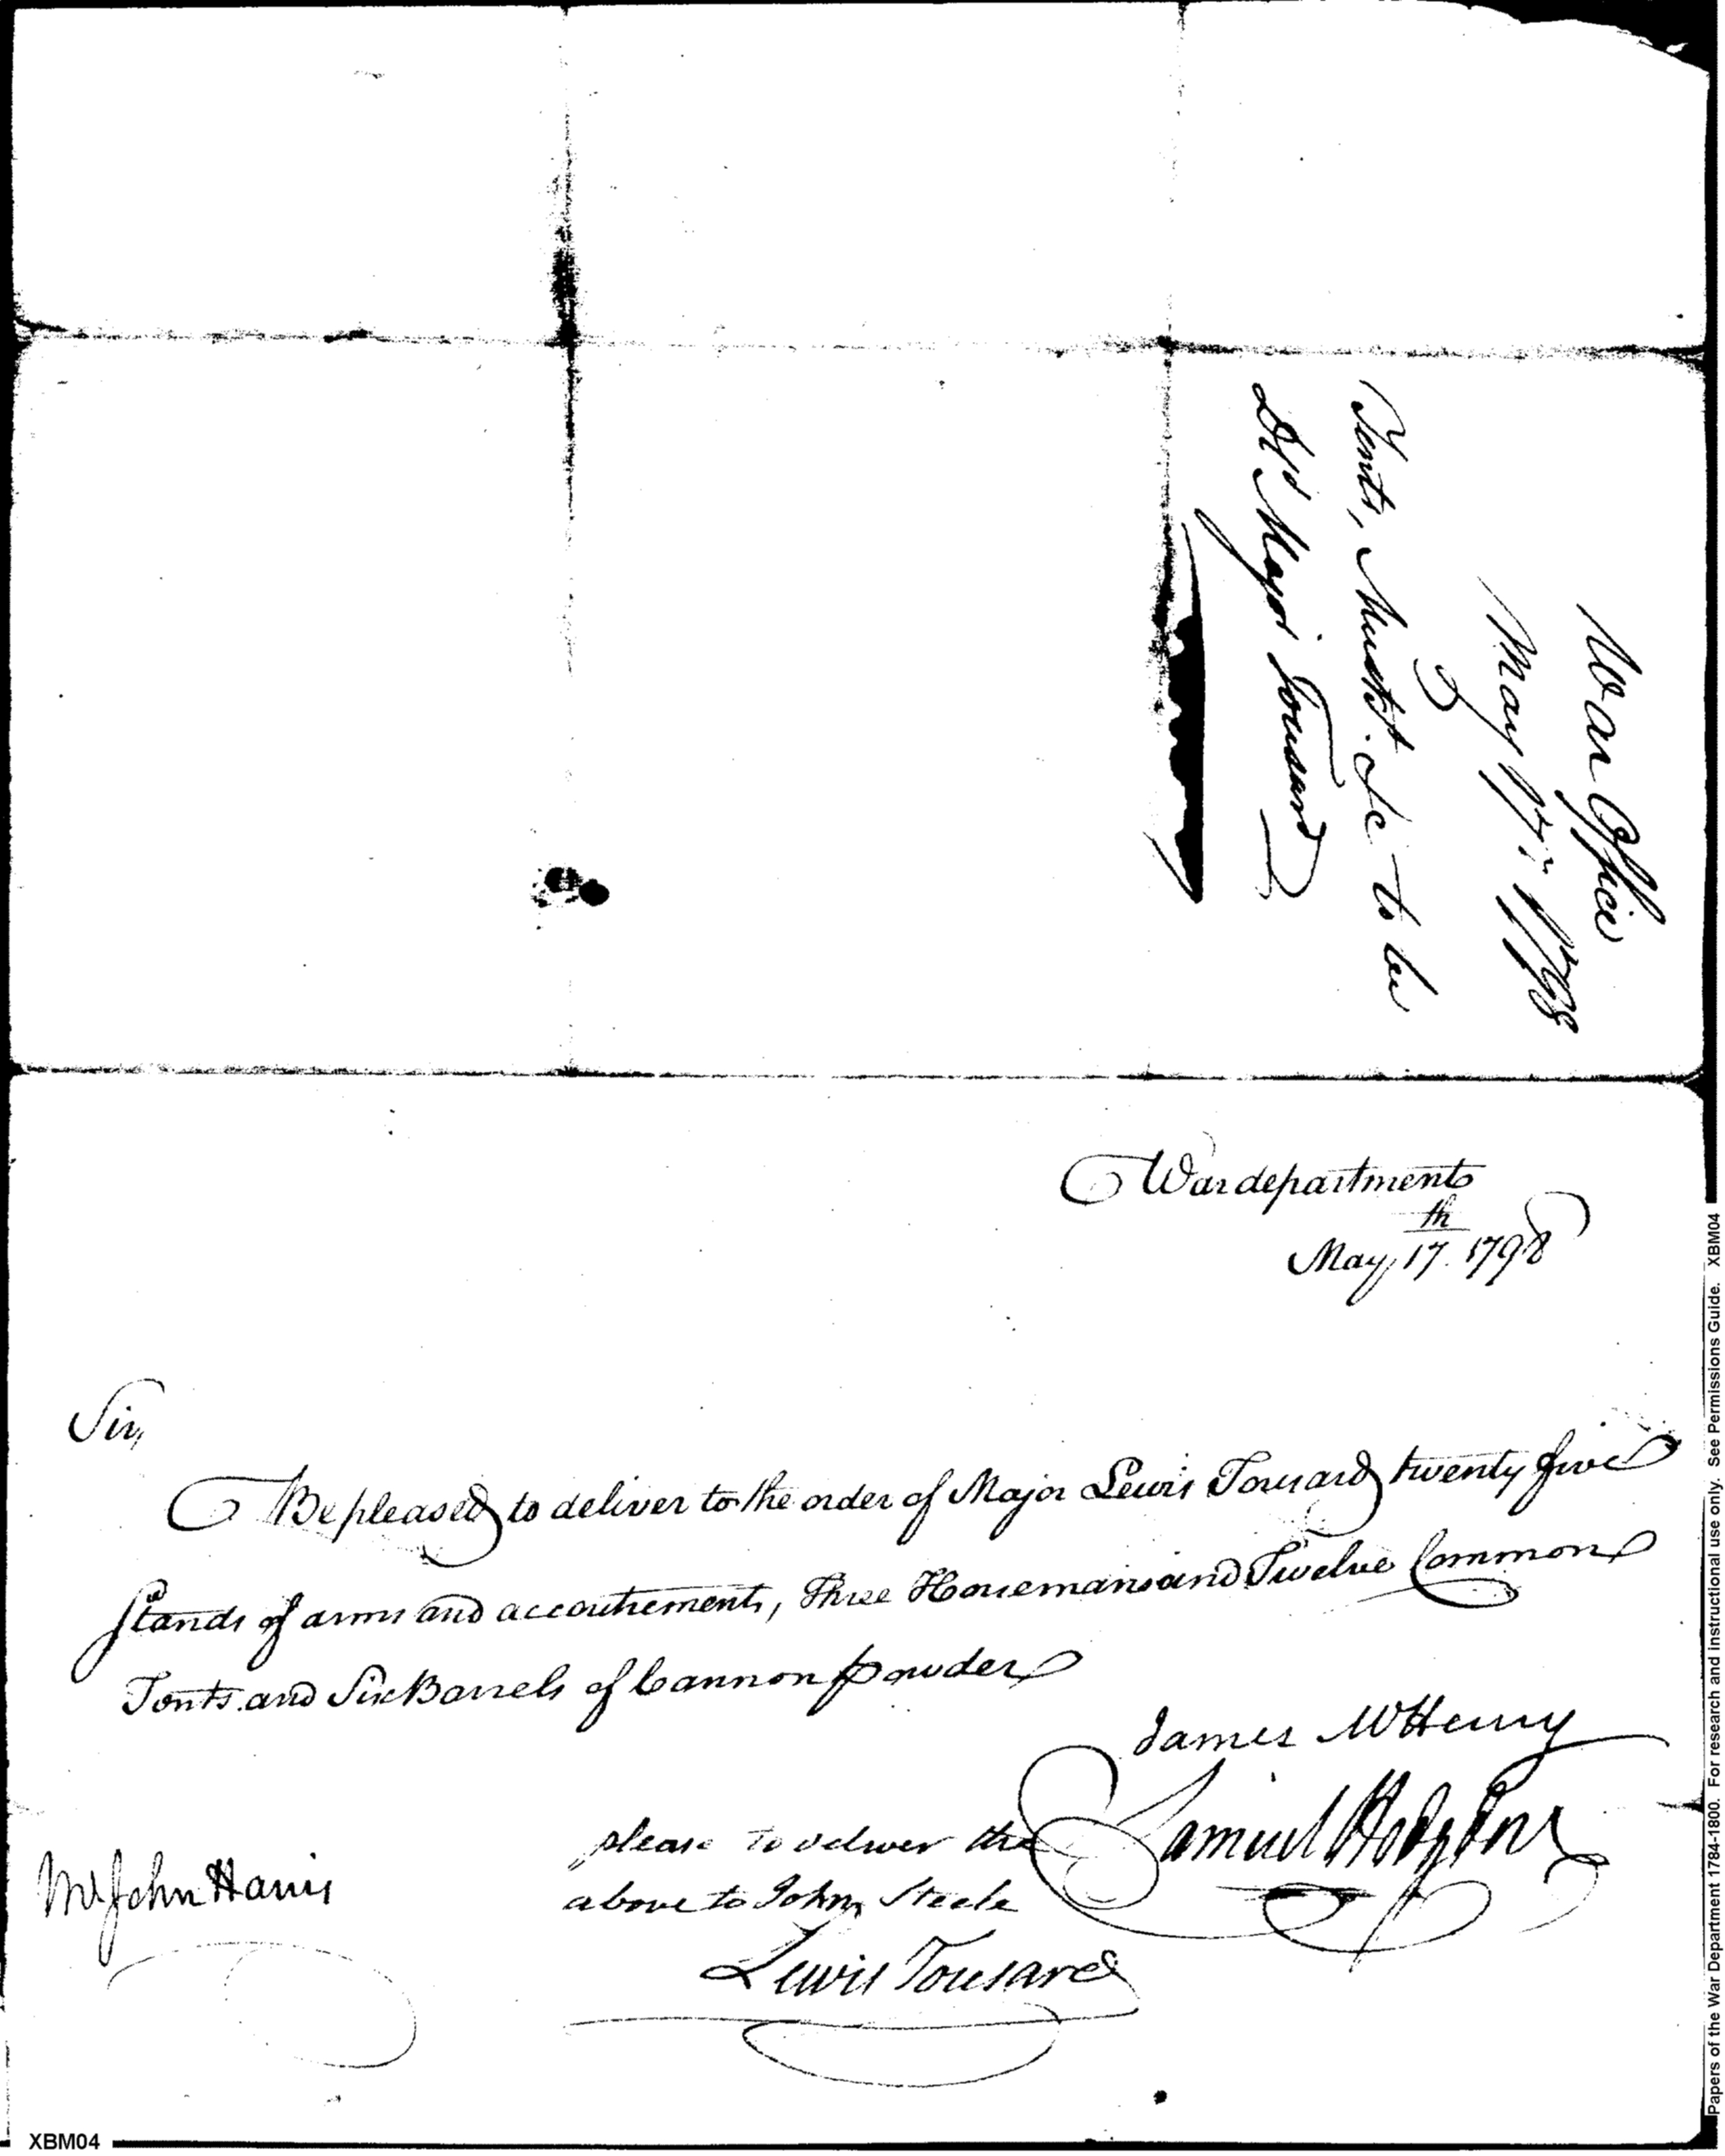 War Office
May 17th 1798
Tents, Muskt. &c to be
dd Major Tousard
War department
May, 17th. 1798
Sir,
Be pleased to deliver to the order of Major Lewis Tousard twenty five
Stands of arms and accoutrements, Three Horsemans and Twelve Common
Tents. and Six Barrels of Cannon powder
James McHenry
Samuel Hodgdon
please to deliver the
above to John Steele
Lewis Tousard
Mr John Harris
Papers of the War Department 1784-1800. For research and instructional use only. See Permissions Guide. XBM04
XBM04